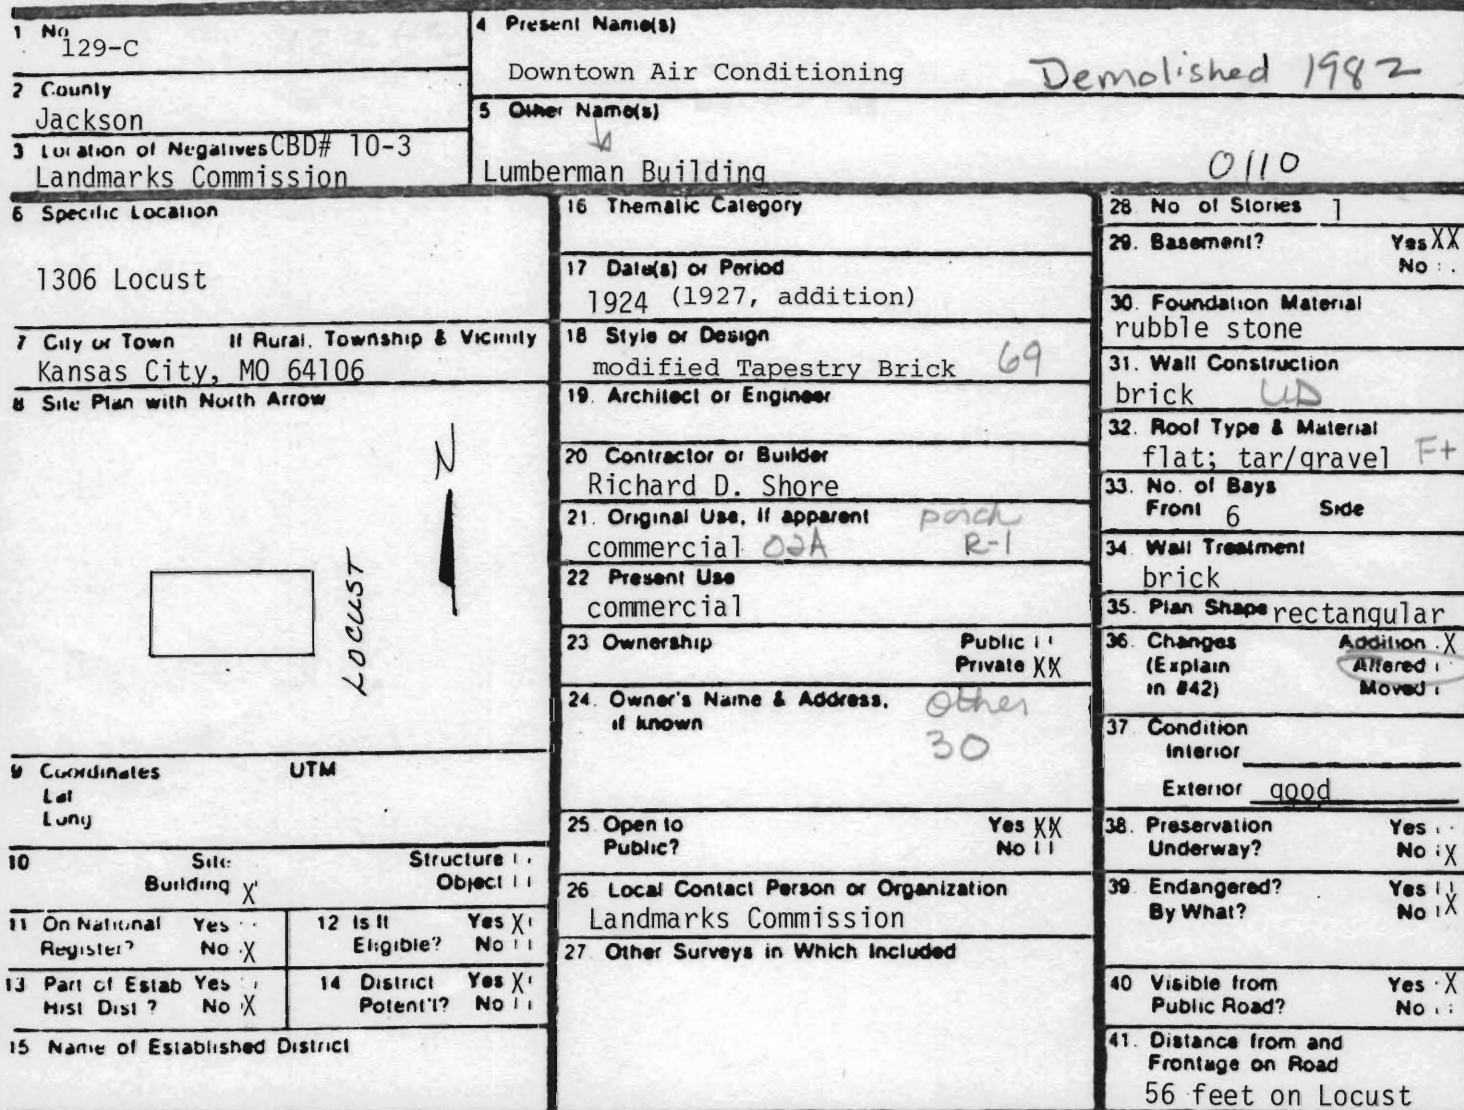 1 No
129-C
2 County
Jackson
3 Location of Negatives CBD# 10-3
Landmarks Commission
4 Present Name(s)
Downtown Air Conditioning
Demolished 1982
5 Other Name(s)
Lumberman Building
0110
6 Specific Location
1306 Locust
7 City or Town If Rural, Township & Vicinity
Kansas City, MO 64106
8 Site Plan with North Arrow
N
LOCUST
9 Coordinates UTM
Lat
Long
10 Site Structure
Building X Object
11 On National Yes
Register? No X
12 Is It Yes X
Eligible? No
13 Part of Estab Yes
Hist Dist? No X
14 District Yes X
Potent'l? No
15 Name of Established District
16 Thematic Category
17 Date(s) or Period
1924 (1927, addition)
18 Style or Design
modified Tapestry Brick 69
19. Architect or Engineer
20 Contractor or Builder
Richard D. Shore
21. Original Use, if apparent porch
commercial 02A R-1
22 Present Use
commercial
23 Ownership Public
Private XX
24. Owner's Name & Address, other
if known 30
25. Open to Yes XX
Public? No
26. Local Contact Person or Organization
Landmarks Commission
27 Other Surveys in Which Included
28. No of Stories 1
29. Basement? Yes XX
No
30. Foundation Material
rubble stone
31. Wall Construction
brick UD
32. Roof Type & Material
flat; tar/gravel F+
33. No. of Bays
Front 6 Side
34 Wall Treatment
brick
35. Plan Shape rectangular
36. Changes Addition X
(Explain Altered
in #42) Moved
37 Condition
Interior
Exterior good
38. Preservation Yes
Underway? No X
39. Endangered? Yes
By What? No X
40 Visible from Yes X
Public Road? No
41. Distance from and
Frontage on Road
56 feet on Locust